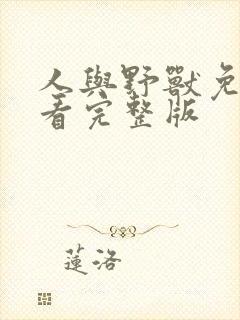 人與野獸免
看完整版
蓮洛